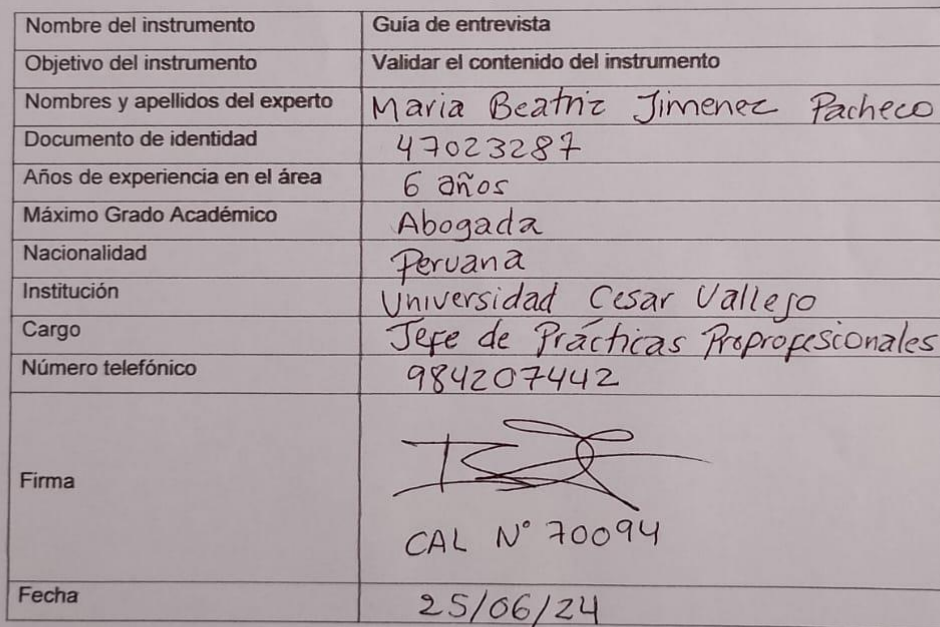 Nombre del instrumento Guía de entrevista
Objetivo del instrumento Validar el contenido del instrumento
Nombres y apellidos del experto Maria Beatriz Jimenez Pacheco
Documento de identidad 47023287
Años de experiencia en el área 6 años
Máximo Grado Académico Abogada
Nacionalidad Peruana
Institución Universidad Cesar Vallejo
Cargo Jefe de Prácticas Preprofesionales
Número telefónico 984207442
Firma
CAL N° 70094
Fecha 25/06/24